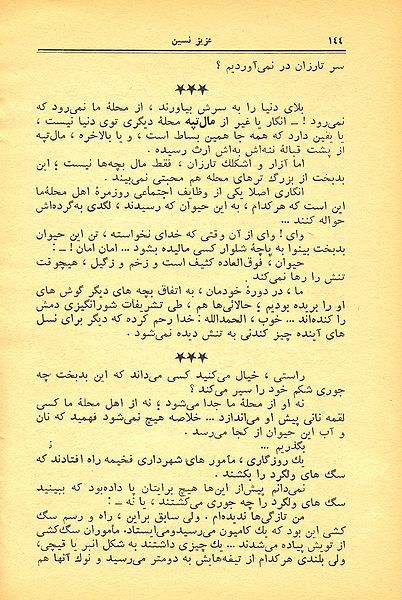 ۱۴۴ عزیز نسین
سر تارزان در نمی‌آوردیم ؟
★★★
بلای دنیا را به سرش بیاورند ، از محلهٔ ما نمی‌رود که
نمی‌رود ! ــ انگار یا غیر از مال‌تپه محلهٔ دیگری توی دنیا نیست ،
یا یقین دارد که همه جا همین بساط است ، و یا بالاخره ، مال‌تپه
از پشت قبالهٔ ننه‌اش به‌اش ارث رسیده .
اما آزار و اشکلک تارزان ، فقط مال بچه‌ها نیست ؛ این
بدبخت از بزرگ ترهای محله هم محبتی نمی‌بیند .
انگاری اصلا یکی از وظایف اجتماعی روزمرهٔ اهل محلهٔ‌ما
این است که هرکدام ، به این حیوان که رسیدند ، لگدی به‌گرده‌اش
حواله کنند ...
وای ! وای از آن وقتی که خدای نخواسته ، تن این حیوان
بدبخت بینوا به پاچهٔ شلوار کسی مالیده بشود ... امان امان ! ــ :
حیوان ، فوق‌العاده کثیف است و زخم و زگیل ، هیچوقت
تنش را رها نمی‌کند
ما ، در دورهٔ خودمان ، به اتفاق بچه های دیگر گوش های
او را بریده بودیم ؛ حالائی‌ها هم ، طی تشریفات شورانگیزی دمش
را کنده‌اند ... خوب ، الحمدالله : خدا رحم کرده که دیگر برای نسل
های آینده چیز کندنی به تنش دیده نمی‌شود .
★★★
راستی ، خیال می‌کنید کسی می‌داند که این بدبخت چه
جوری شکم خود را سیر می‌کند ؟
نه او از محلهٔ ما جدا می‌شود ؛ نه از اهل محلهٔ ما کسی
لقمه نانی پیش او می‌اندازد ... خلاصه هیچ نمی‌شود فهمید که نان
و آب این حیوان از کجا می‌رسد .
بگذریم ...
یك روزگاری ، مامور های شهرداری فخیمه راه افتادند که
سگ های ولگرد را بکشند .
نمی‌دانم پیش‌از این‌ها هیچ برایتان پا داده‌بود که ببینید
سگ های ولگرد را چه جوری می‌کشتند ، یا نه ــ :
من تازگی‌ها ندیده‌ام . ولی سابق براین ، راه و رسم سگ
کشی این بود که یك کامیون می‌رسیدومی‌ایستاد. ماموران سگ‌کشی
از تویش پیاده می‌شدند ... یك چیزی داشتند به شکل انبر یا قیچی،
ولی بلندی هرکدام از تیغه‌هایش به دومتر می‌رسید و نوك آنها هم